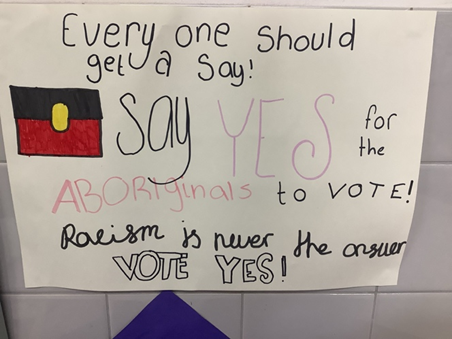 Every one should
get a say!
Say YES for
the
ABORiginals to VOTE!
Racism is never the answer
VOTE YES!